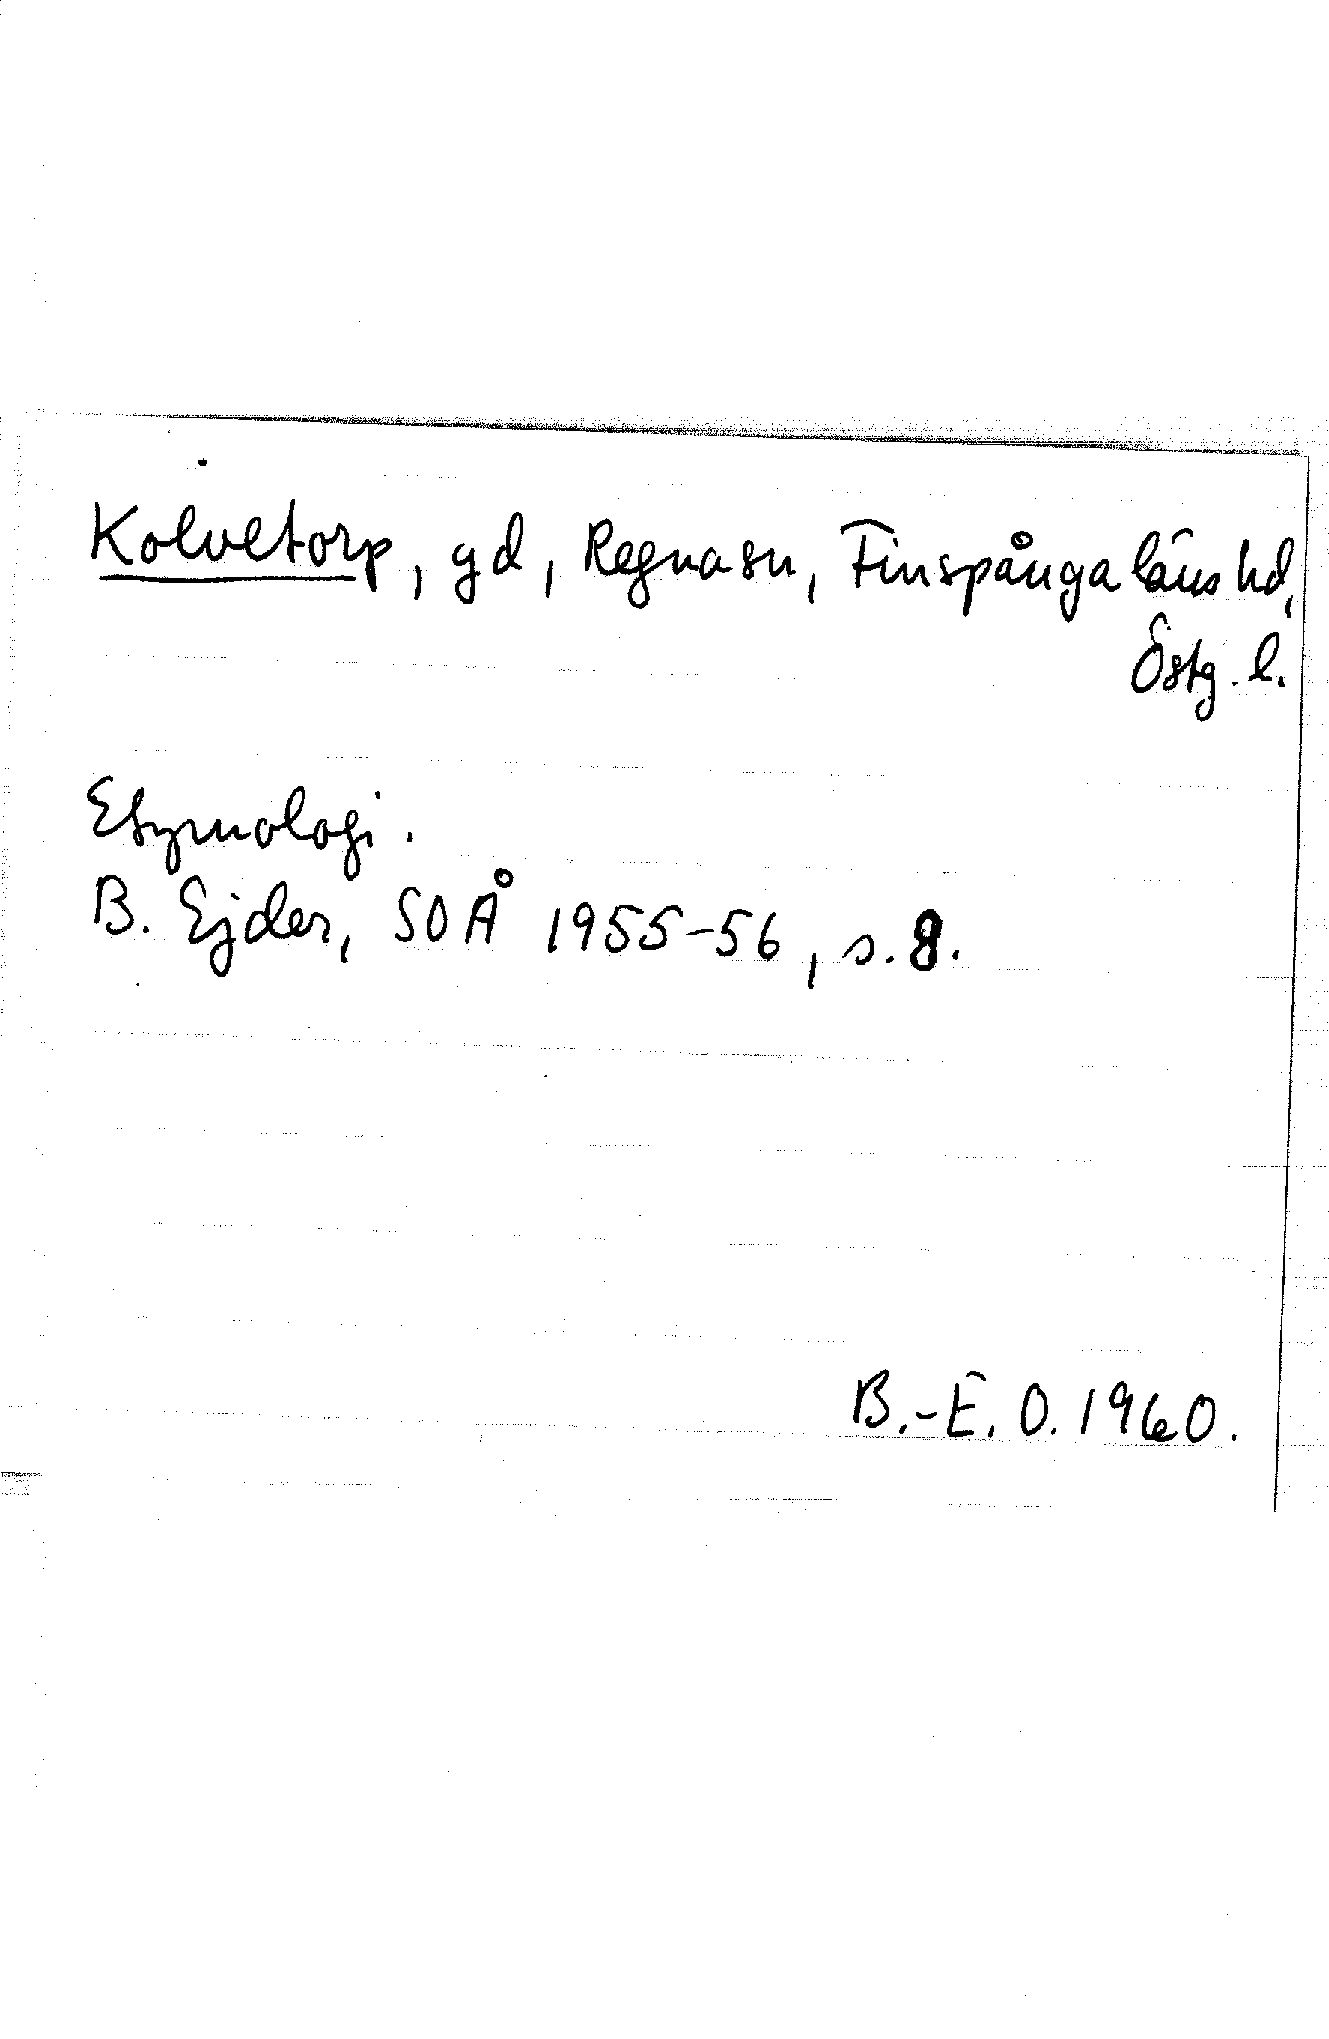 Kolvetorp, gd, Regna sn, Finspånga läns hd,
Östg. l.
Etymologi.
B. Ejder, SOÅ 1955-56, s. 8.
B.-E. O. 1960.